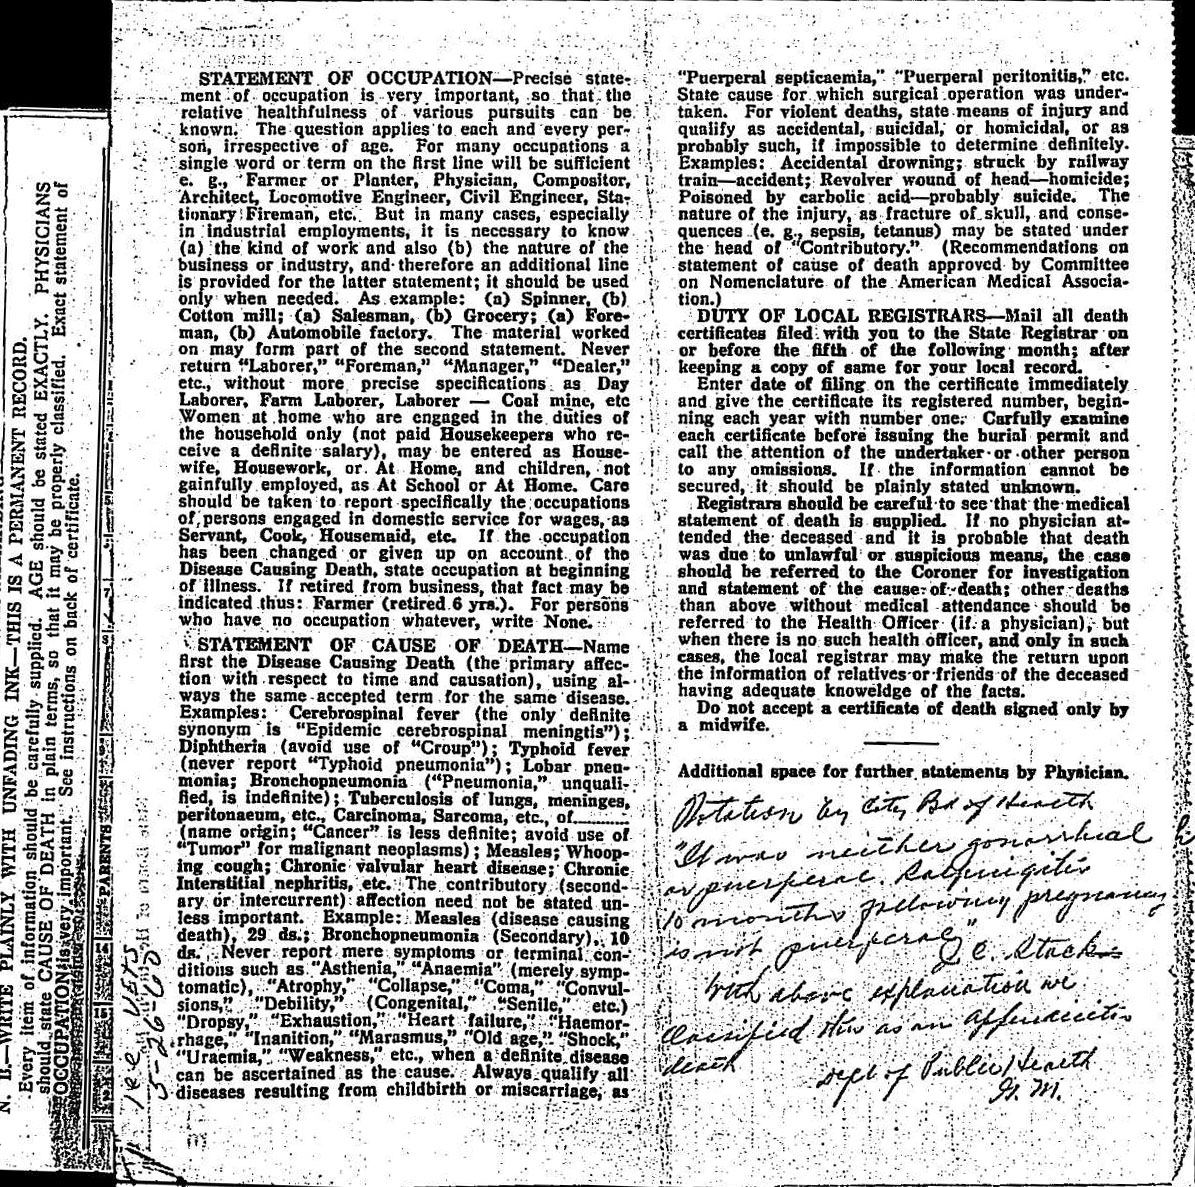 STATEMENT OF OCCUPATION—Precise state-
ment of occupation is very important, so that the
relative healthfulness of various pursuits can be
known. The question applies to each and every per-
son, irrespective of age. For many occupations a
single word or term on the first line will be sufficient
e. g., Farmer or Planter, Physician, Compositor,
Architect, Locomotive Engineer, Civil Engineer, Sta-
tionary Fireman, etc. But in many cases, especially
in industrial employments, it is necessary to know
(a) the kind of work and also (b) the nature of the
business or industry, and therefore an additional line
is provided for the latter statement; it should be used
only when needed. As example: (a) Spinner, (b)
Cotton mill; (a) Salesman, (b) Grocery; (a) Fore-
man, (b) Automobile factory. The material worked
on may form part of the second statement. Never
return "Laborer," "Foreman," "Manager," "Dealer,"
etc., without more precise specifications as Day
Laborer, Farm Laborer, Laborer — Coal mine, etc
Women at home who are engaged in the duties of
the household only (not paid Housekeepers who re-
ceive a definite salary), may be entered as House-
wife, Housework, or At Home, and children, not
gainfully employed, as At School or At Home. Care
should be taken to report specifically the occupations
of persons engaged in domestic service for wages, as
Servant, Cook, Housemaid, etc. If the occupation
has been changed or given up on account of the
Disease Causing Death, state occupation at beginning
of illness. If retired from business, that fact may be
indicated thus: Farmer (retired 6 yrs.). For persons
who have no occupation whatever, write None.
STATEMENT OF CAUSE OF DEATH—Name
first the Disease Causing Death (the primary affec-
tion with respect to time and causation), using al-
ways the same accepted term for the same disease.
Examples: Cerebrospinal fever (the only definite
synonym is "Epidemic cerebrospinal meningtis");
Diphtheria (avoid use of "Croup"); Typhoid fever
(never report "Typhoid pneumonia"); Lobar pneu-
monia; Bronchopneumonia ("Pneumonia," unquali-
fied, is indefinite); Tuberculosis of lungs, meninges,
peritonaeum, etc., Carcinoma, Sarcoma, etc., of
(name origin; "Cancer" is less definite; avoid use of
"Tumor" for malignant neoplasms); Measles; Whoop-
ing cough; Chronic valvular heart disease; Chronic
Interstitial nephritis, etc. The contributory (second-
ary or intercurrent) affection need not be stated un-
less important. Example: Measles (disease causing
death), 29 ds.; Bronchopneumonia (Secondary), 10
ds. Never report mere symptoms or terminal con-
ditions such as "Asthenia," "Anaemia" (merely symp-
tomatic), "Atrophy," "Collapse," "Coma," "Convul-
sions," "Debility," (Congenital," "Senile," etc.)
"Dropsy," "Exhaustion," "Heart failure," "Haemor-
rhage," "Inanition," "Marasmus," "Old age," "Shock,"
"Uraemia," "Weakness," etc., when a definite disease
can be ascertained as the cause. Always qualify all
diseases resulting from childbirth or miscarriage, as
"Puerperal septicaemia," "Puerperal peritonitis," etc.
State cause for which surgical operation was under-
taken. For violent deaths, state means of injury and
qualify as accidental, suicidal, or homicidal, or as
probably such, if impossible to determine definitely.
Examples: Accidental drowning; struck by railway
train—accident; Revolver wound of head—homicide;
Poisoned by carbolic acid—probably suicide. The
nature of the injury, as fracture of skull, and conse-
quences (e. g., sepsis, tetanus) may be stated under
the head of "Contributory." (Recommendations on
statement of cause of death approved by Committee
on Nomenclature of the American Medical Associa-
tion.)
DUTY OF LOCAL REGISTRARS—Mail all death
certificates filed with you to the State Registrar on
or before the fifth of the following month; after
keeping a copy of same for your local record.
Enter date of filing on the certificate immediately
and give the certificate its registered number, begin-
ning each year with number one. Carfully examine
each certificate before issuing the burial permit and
call the attention of the undertaker or other person
to any omissions. If the information cannot be
secured, it should be plainly stated unknown.
Registrars should be careful to see that the medical
statement of death is supplied. If no physician at-
tended the deceased and it is probable that death
was due to unlawful or suspicious means, the case
should be referred to the Coroner for investigation
and statement of the cause of death; other deaths
than above without medical attendance should be
referred to the Health Officer (if a physician), but
when there is no such health officer, and only in such
cases, the local registrar may make the return upon
the information of relatives or friends of the deceased
having adequate knoweldge of the facts.
Do not accept a certificate of death signed only by
a midwife.
Additional space for further statements by Physician.
Notation by City Bd of Health
"It was neither gonorrheal
or puerperal. Salpingitis
10 months following pregnancy
is not puerperal"
C. Stack
With above explanation we
classified this as an appendicitis
death
Dept of Public Health
G. M.
N. B.—WRITE PLAINLY WITH UNFADING INK—THIS IS A PERMANENT RECORD.
Every item of information should be carefully supplied. AGE should be stated EXACTLY. PHYSICIANS
should state CAUSE OF DEATH in plain terms, so that it may be properly classified. Exact statement of
OCCUPATION is very important. See instructions on back of certificate.
PARENTS
14
15
5-26-60